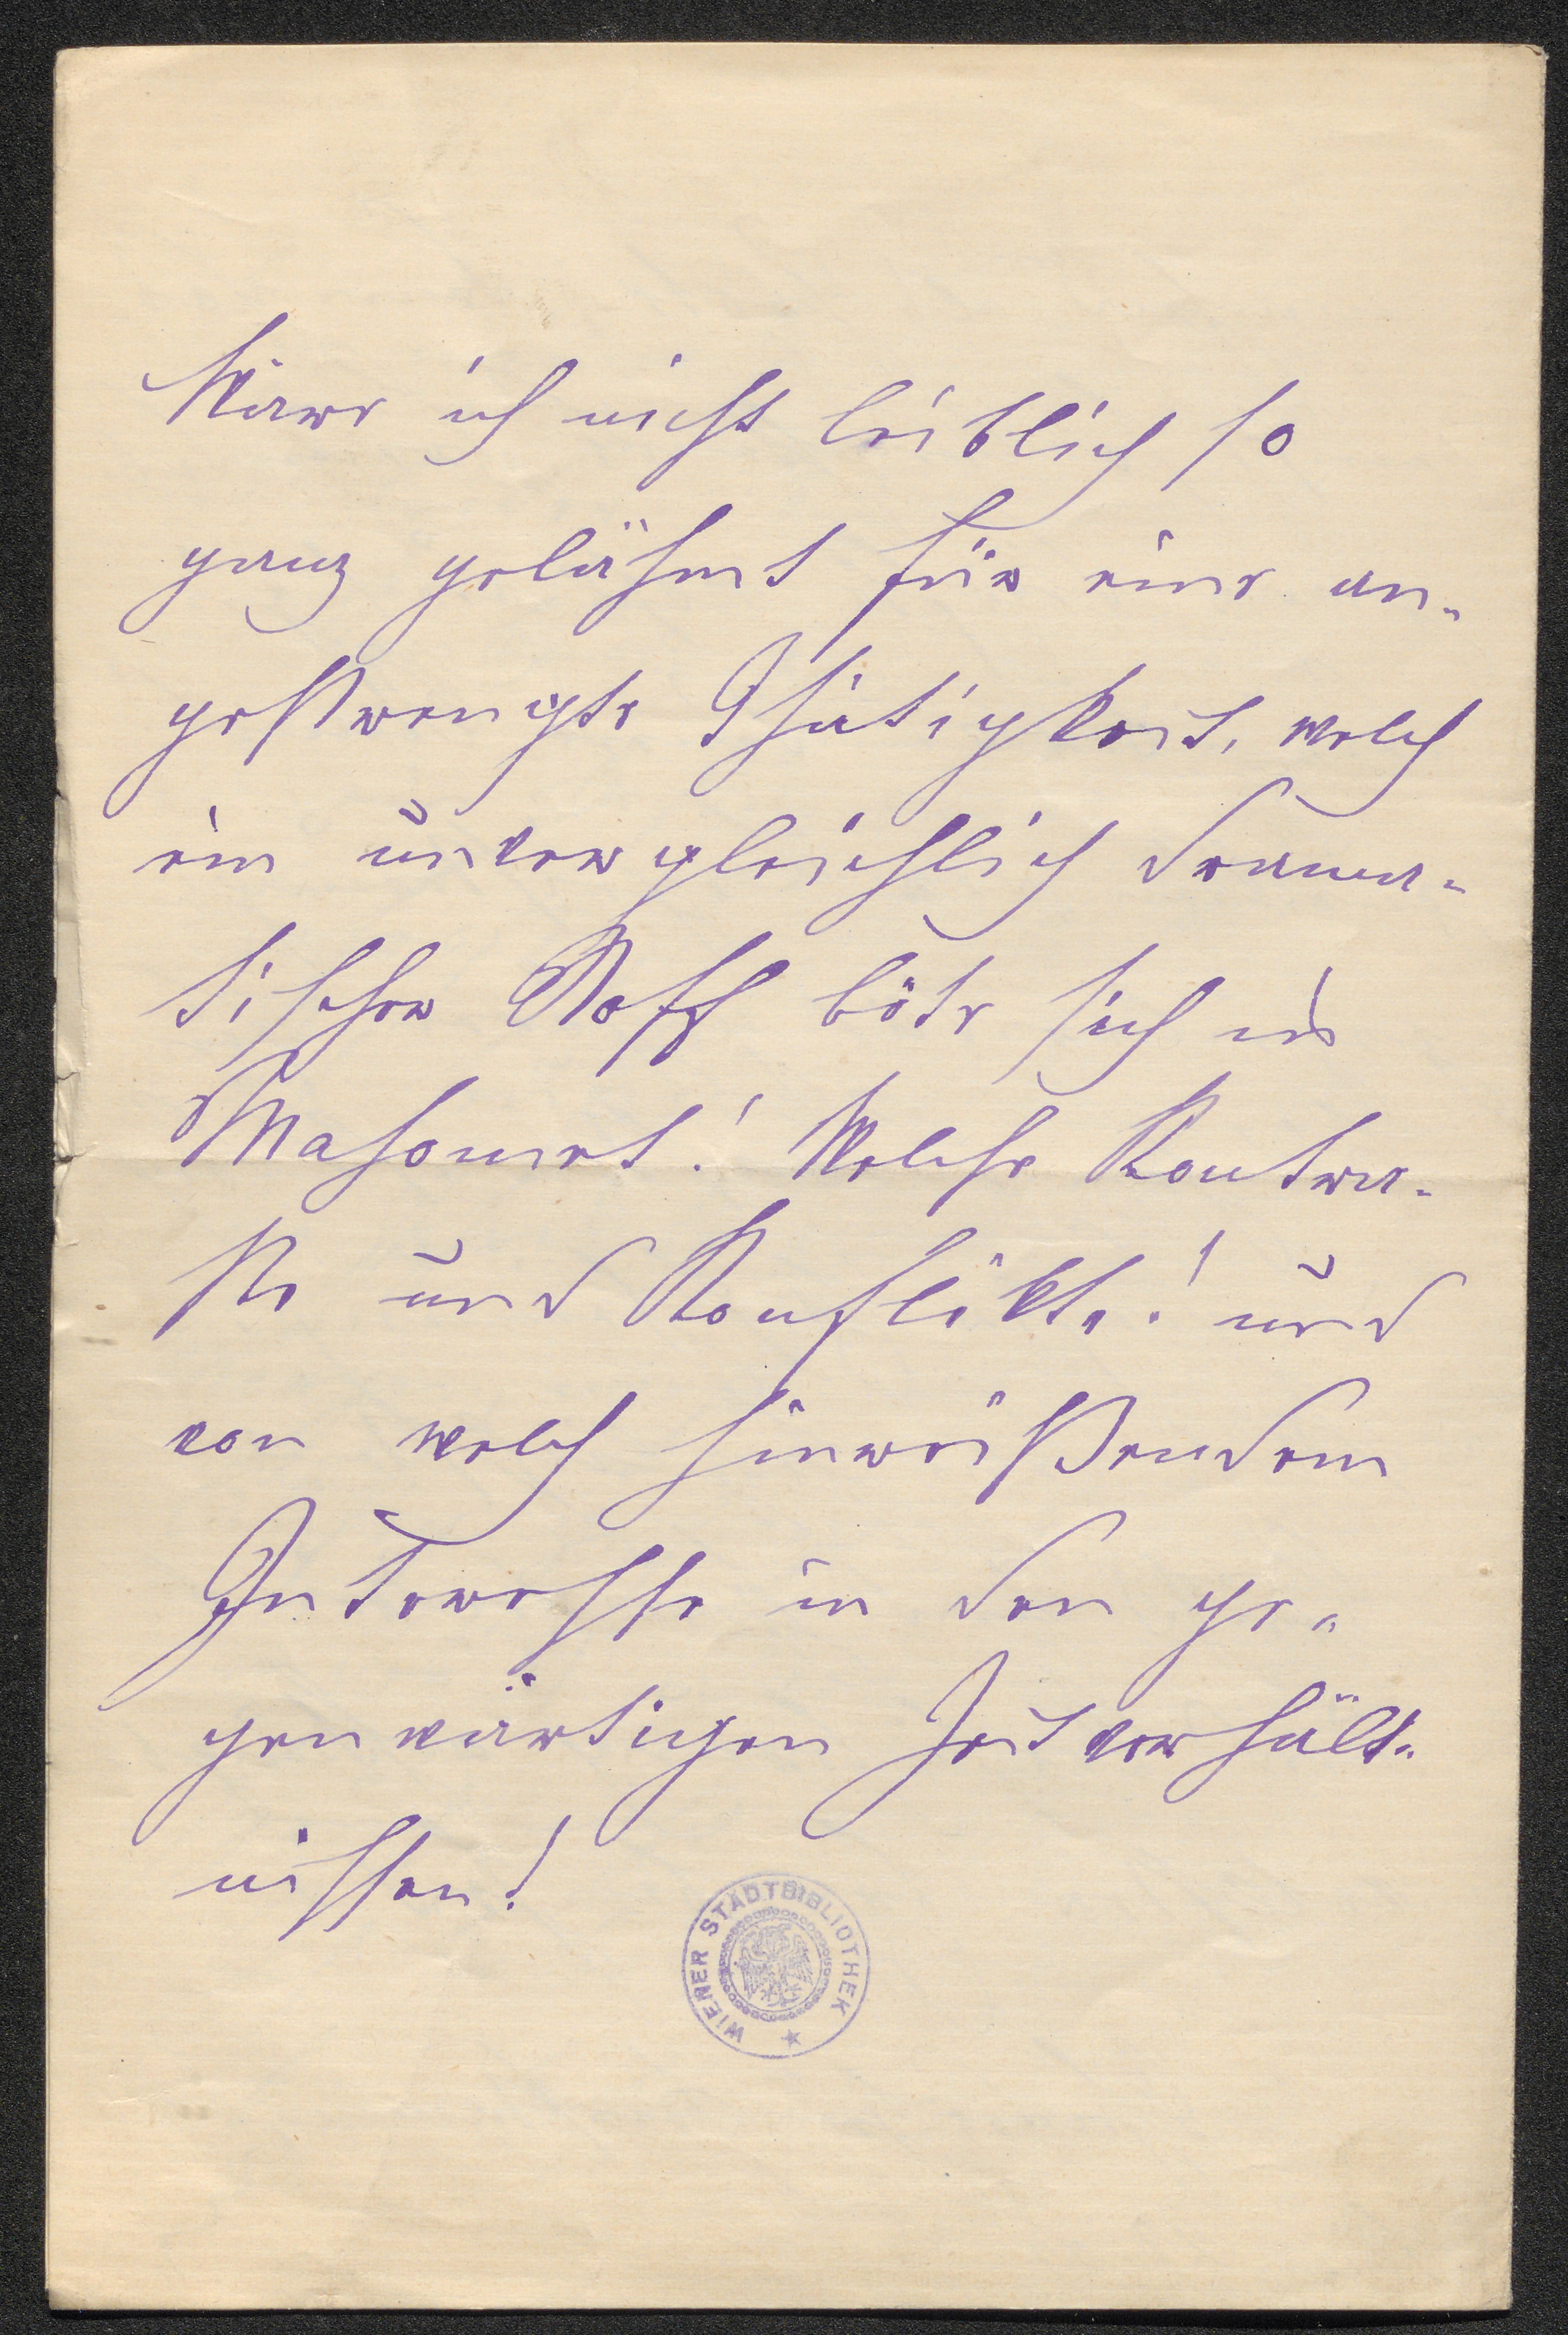 Wäre ich nicht leiblich so
ganz gelähmt für eine an-
gestrengte Thätigkeit, welch
ein unvergleichlich drama-
tischer Stoff böte sich in
Mahomet! Welche Kontra-
ste und Konflikte! und
von welch hinreißendem
Interesse in den ge-
genwärtigen Zeitverhält-
nissen!
WIENER STADTBIBLIOTHEK